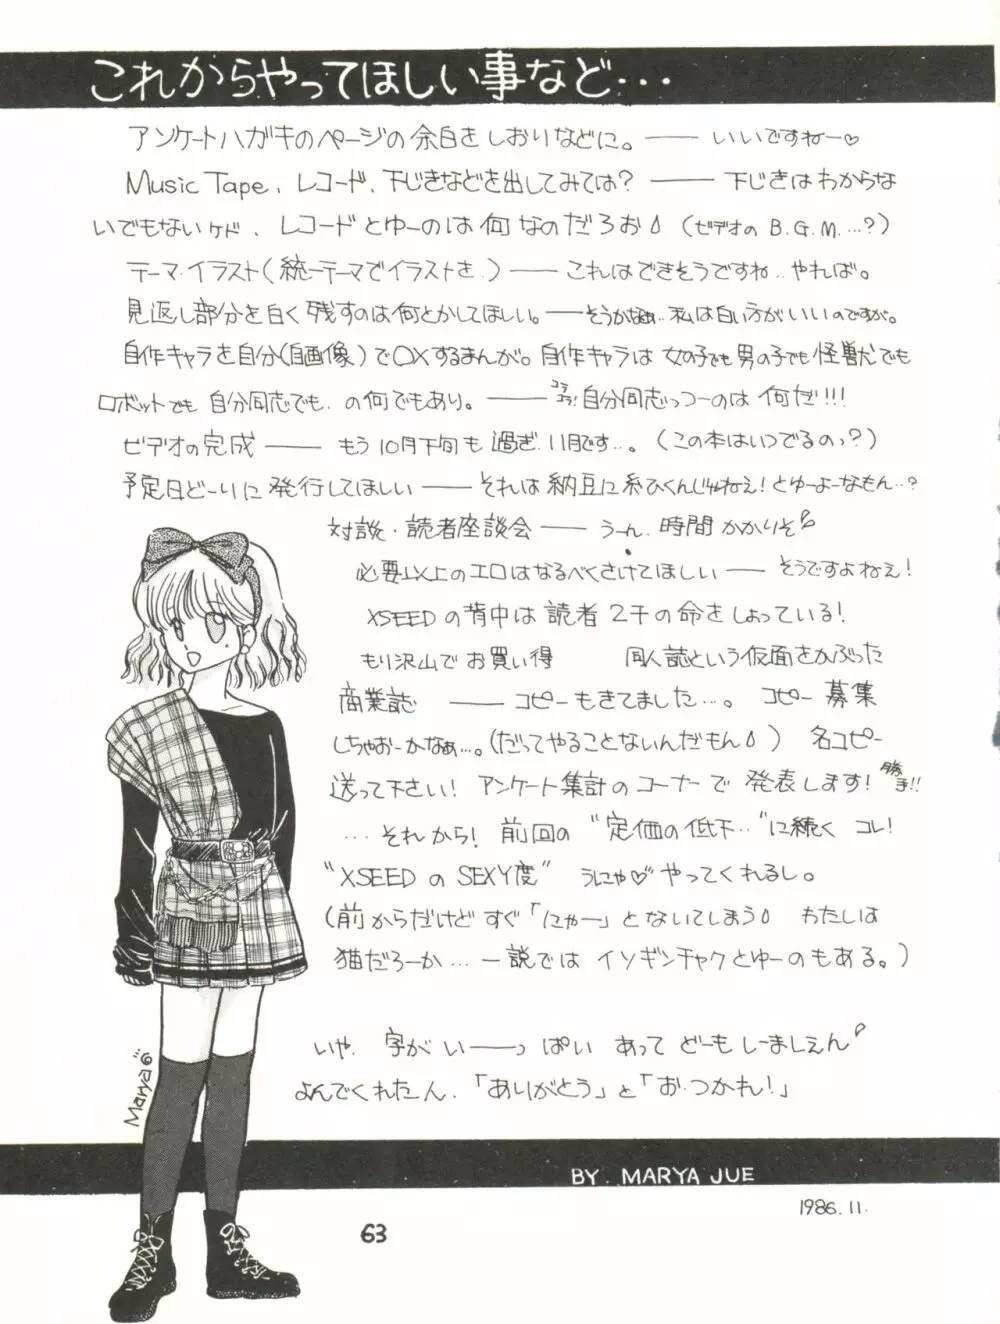 これからやってほしい事など・・・
アンケートハガキのページの余白をしおりなどに。―― いいですねー♡
Music Tape、レコード、下じきなどを出してみては？ ―― 下じきはわからな
いでもないケド、レコードとゆーのは何なのだろお （ビデオの B.G.M.…？）
テーマ・イラスト（統一テーマでイラストを.）―― これはできそうですね..やれば。
見返し部分を白く残すのは何とかしてほしい。―― そうかなぁ..私は白い方がいいのですが。
自作キャラを自分（自画像）で〇×するまんが。自作キャラは女の子でも男の子でも怪獣でも
ロボットでも 自分同志でも、の何でもあり。―― コラコラ！自分同志っつーのは何だ!!!
ビデオの完成 ―― もう10月下旬も過ぎ、11月です…。（この本はいつでるのっ？）
予定日どーりに発行してほしい ―― それは納豆に糸ひくんじゃねえ！とゆーよーなもん…？
対談・読者座談会 ―― うーん、時間かかりそ
必要以上のエロはなるべくさけてほしい ―― そうですよねぇ！
XSEEDの背中は読者2千の命をしょっている！
もり沢山でお買い得 同人誌という仮面をかぶった
商業誌 ―― コピーもきてました…。 コピー募集
しちゃおーかなぁ…。（だってやることないんだもん） 名コピー
送って下さい！ アンケート集計のコーナーで発表します！勝手!!
…それから！ 前回の “定価の低下…”に続く コレ！
“XSEEDのSEXY度” うにゃ♡やってくれるし。
（前からだけどすぐ「にゃー」とないてしまう わたしは
猫だろーか…一説ではイソギンチャクとゆーのもある。）
いや、字がい――っぱいあってどーもしーましぇん
よんでくれたん、「ありがとう」と「お・つかれ！」
Marya
BY. MARYA JUE
1986.11.
63